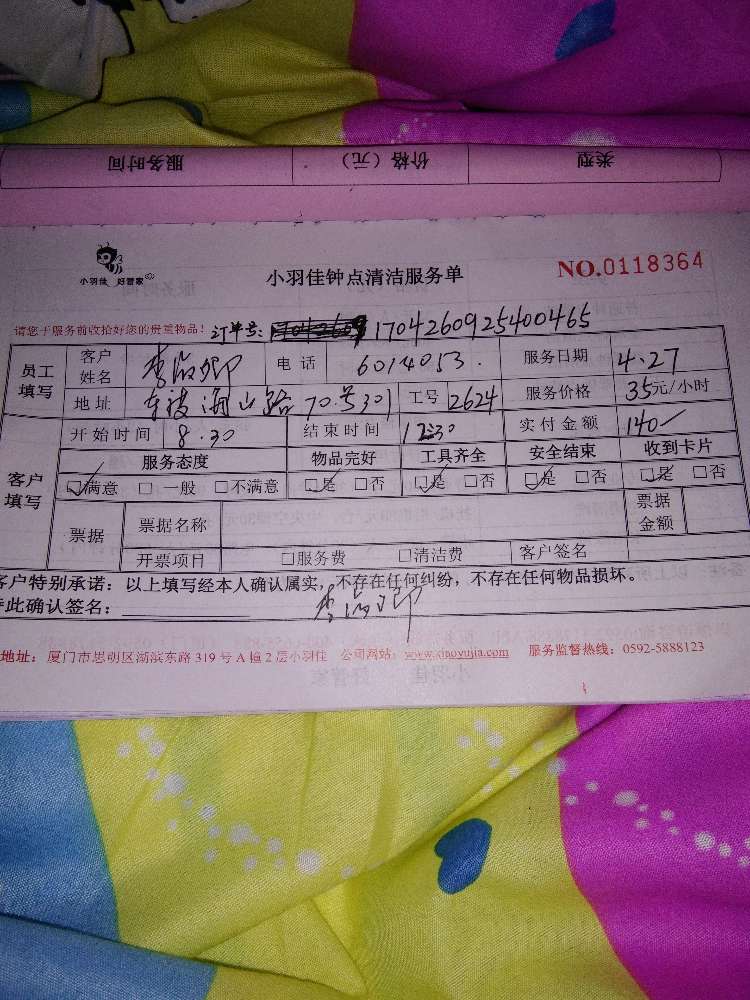 服务时间 价格（元） 类型
小羽佳 好管家
小羽佳钟点清洁服务单 NO.0118364
请您于服务前收拾好您的贵重物品！ 订单号：1704260925400465
员工填写 客户姓名 李 卿 电话 6014053. 服务日期 4.27
地址 海山路70号301 工号 2624 服务价格 35元/小时
客户填写 开始时间 8.30 结束时间 12:30 实付金额 140
服务态度 物品完好 工具齐全 安全结束 收到卡片
☑满意 □一般 □不满意 ☑是 □否 ☑是 □否 ☑是 □否 ☑是 □否
票据 票据名称 票据金额
开票项目 □服务费 □清洁费 客户签名
客户特别承诺：以上填写经本人确认属实，不存在任何纠纷，不存在任何物品损坏。
特此确认签名：
地址：厦门市思明区湖滨东路319号A幢2层小羽佳 公司网站：www.xiaoyujia.com 服务监督热线：0592-5888123